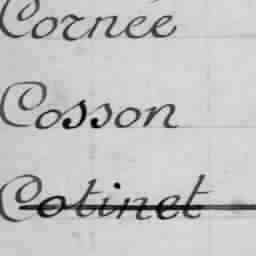 Cornée
Cosson
Cotinet